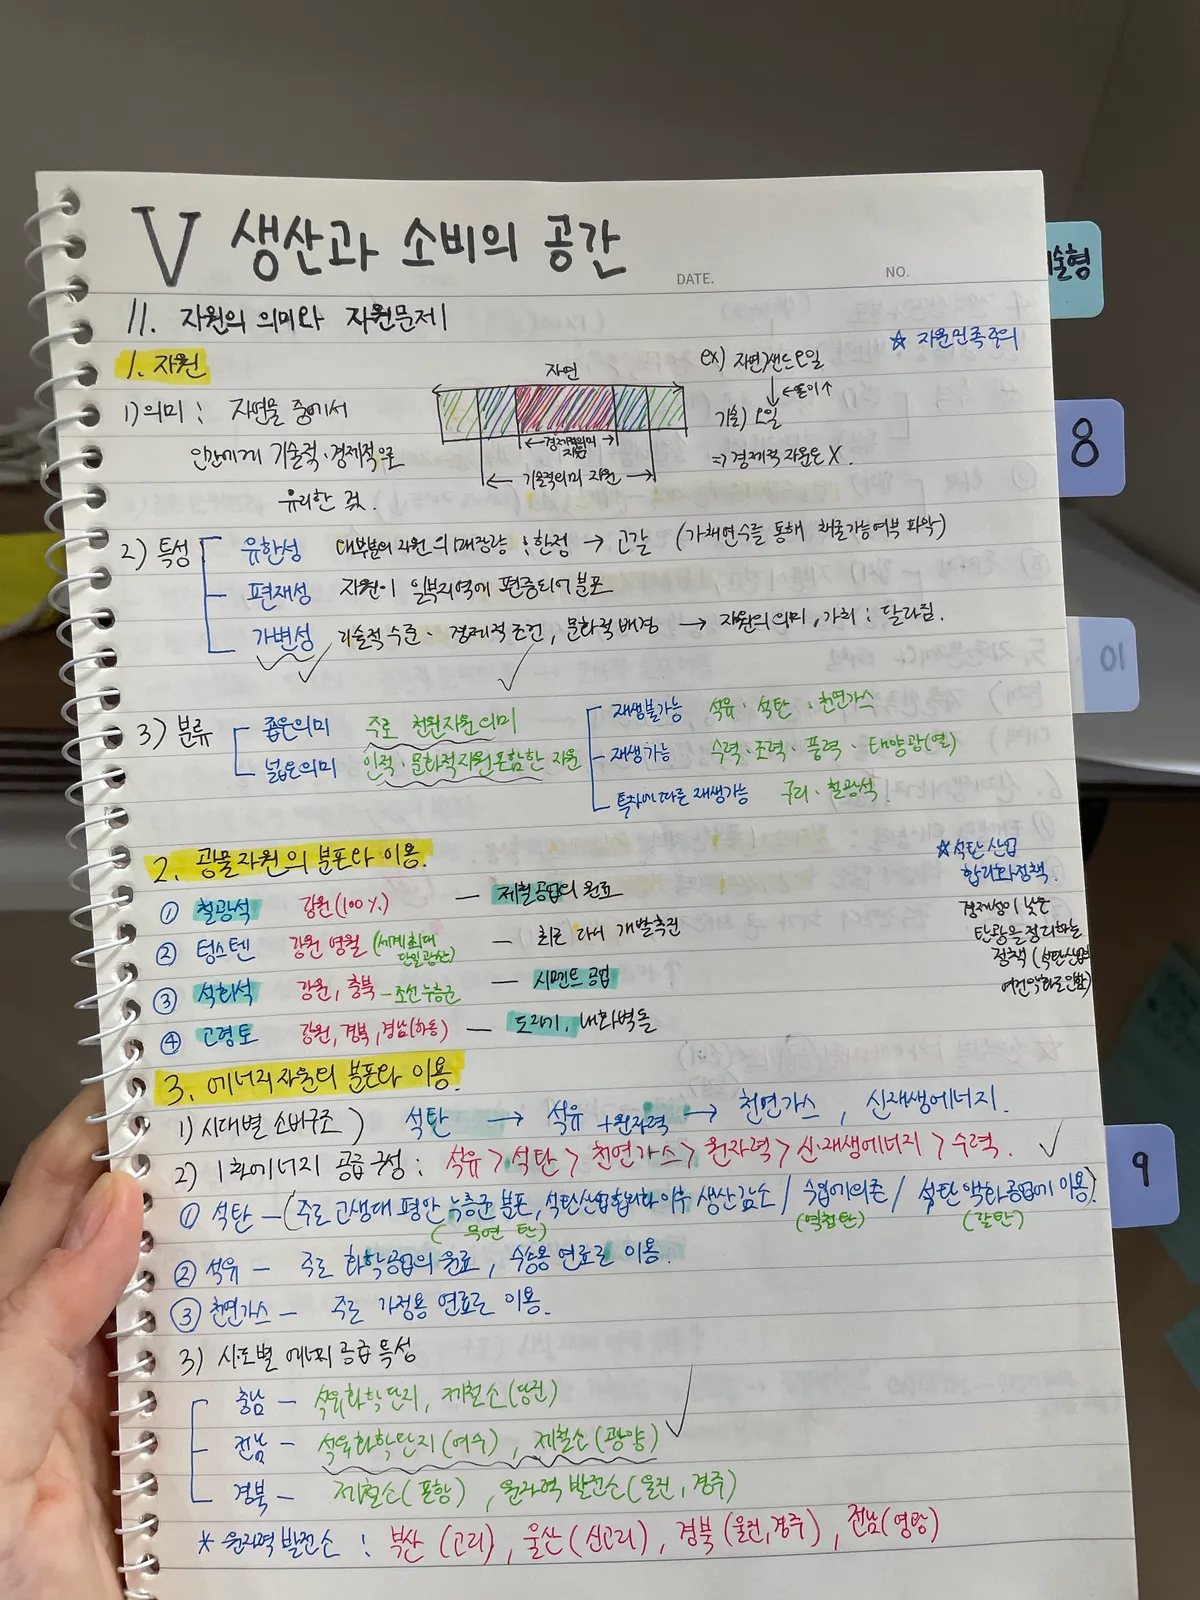 V 생산과 소비의 공간
DATE.
NO.
11. 자원의 의미와 자원문제
☆ 자원민족주의
1. 자원
1) 의미 : 자연물 중에서
인간에게 기술적·경제적으로
유리한 것.
자연
경제적의미 자원
기술적의미 자원
ex) 자연)샌드오일
↓ ←돈이↑
기술) 오일
⇒ 경제적 자원은 X.
2) 특성
유한성 대부분의 자원의 매장량 : 한정 → 고갈 (가채연수를 통해 채굴가능여부 파악)
편재성 자원이 일부지역에 편중되어 분포
가변성 기술적 수준· 경제적 조건, 문화적 배경 → 자원의 의미, 가치 : 달라짐.
3) 분류
좁은의미 주로 천원자원 의미
넓은의미 인적·문화적자원 포함한 자원
재생불가능 석유·석탄·천연가스
재생가능 수력·조력·풍력·태양광(열)
특징에 따른 재생가능 구리·철광석.
2. 광물자원의 분포와 이용.
① 철광석 강원(100%) — 제철공업의 원료
② 텅스텐 강원 영월 (세계최대 단일광산) — 최근 다시 개발추진
③ 석회석 강원, 충북 -조선누층군 — 시멘트 공업
④ 고령토 강원, 경북, 경남(하동) — 도자기, 내화벽돌
☆석탄산업
합리화정책.
경제성이 낮은
탄광을 정리하는
정책 (석탄산업의
여건악화로인함)
3. 에너지자원의 분포와 이용.
1) 시대별 소비구조) 석탄 → 석유 +원자력 → 천연가스, 신재생에너지.
2) 1차에너지 공급구성 : 석유 > 석탄 > 천연가스 > 원자력 > 신·재생에너지 > 수력.
① 석탄 – (주로 고생대 평안 누층군 분포, 석탄산업합리화 이후 생산감소 / 수입에의존 / 석탄 액화공업에 이용).
(무연탄) (역청탄) (갈탄)
② 석유 – 주로 화학공업의 원료, 수송용 연료로 이용.
③ 천연가스 – 주로 가정용 연료로 이용.
3) 시·도별 에너지 공급 특성
충남 – 석유화학단지, 제철소(당진)
전남 – 석유화학단지(여수), 제철소(광양)
경북 – 제철소(포항), 원자력 발전소(울진, 경주)
* 원자력 발전소 : 부산(고리), 울산(신고리), 경북(울진,경주), 전남(영광)
술형
8
10
9